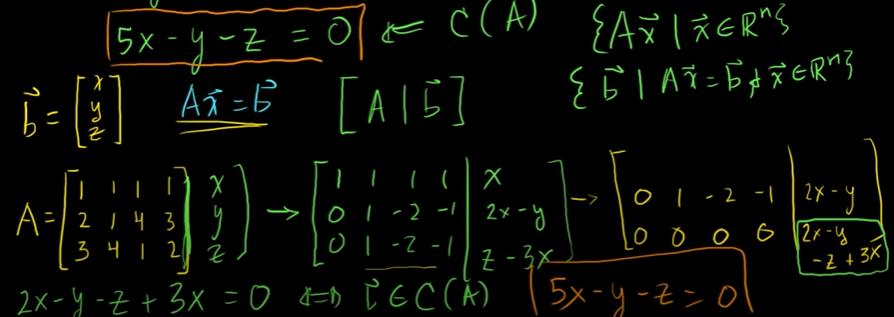 5x - y - z = 0 ← C(A)
{Ax⃗ | x⃗ ∈ ℝⁿ}
{b⃗ | Ax⃗ = b⃗ & x⃗ ∈ ℝⁿ}
b⃗ = [x y z]
Ax⃗ = b⃗
[A | b⃗]
A = [1 1 1 1 | x
2 1 4 3 | y
3 4 1 2 | z]
→ [1 1 1 1 | x
0 1 -2 -1 | 2x-y
0 1 -2 -1 | z-3x]
→ [0 1 -2 -1 | 2x-y
0 0 0 0 | 2x-y
-z+3x]
2x-y-z+3x = 0 ⟺ b⃗ ∈ C(A)
5x-y-z = 0